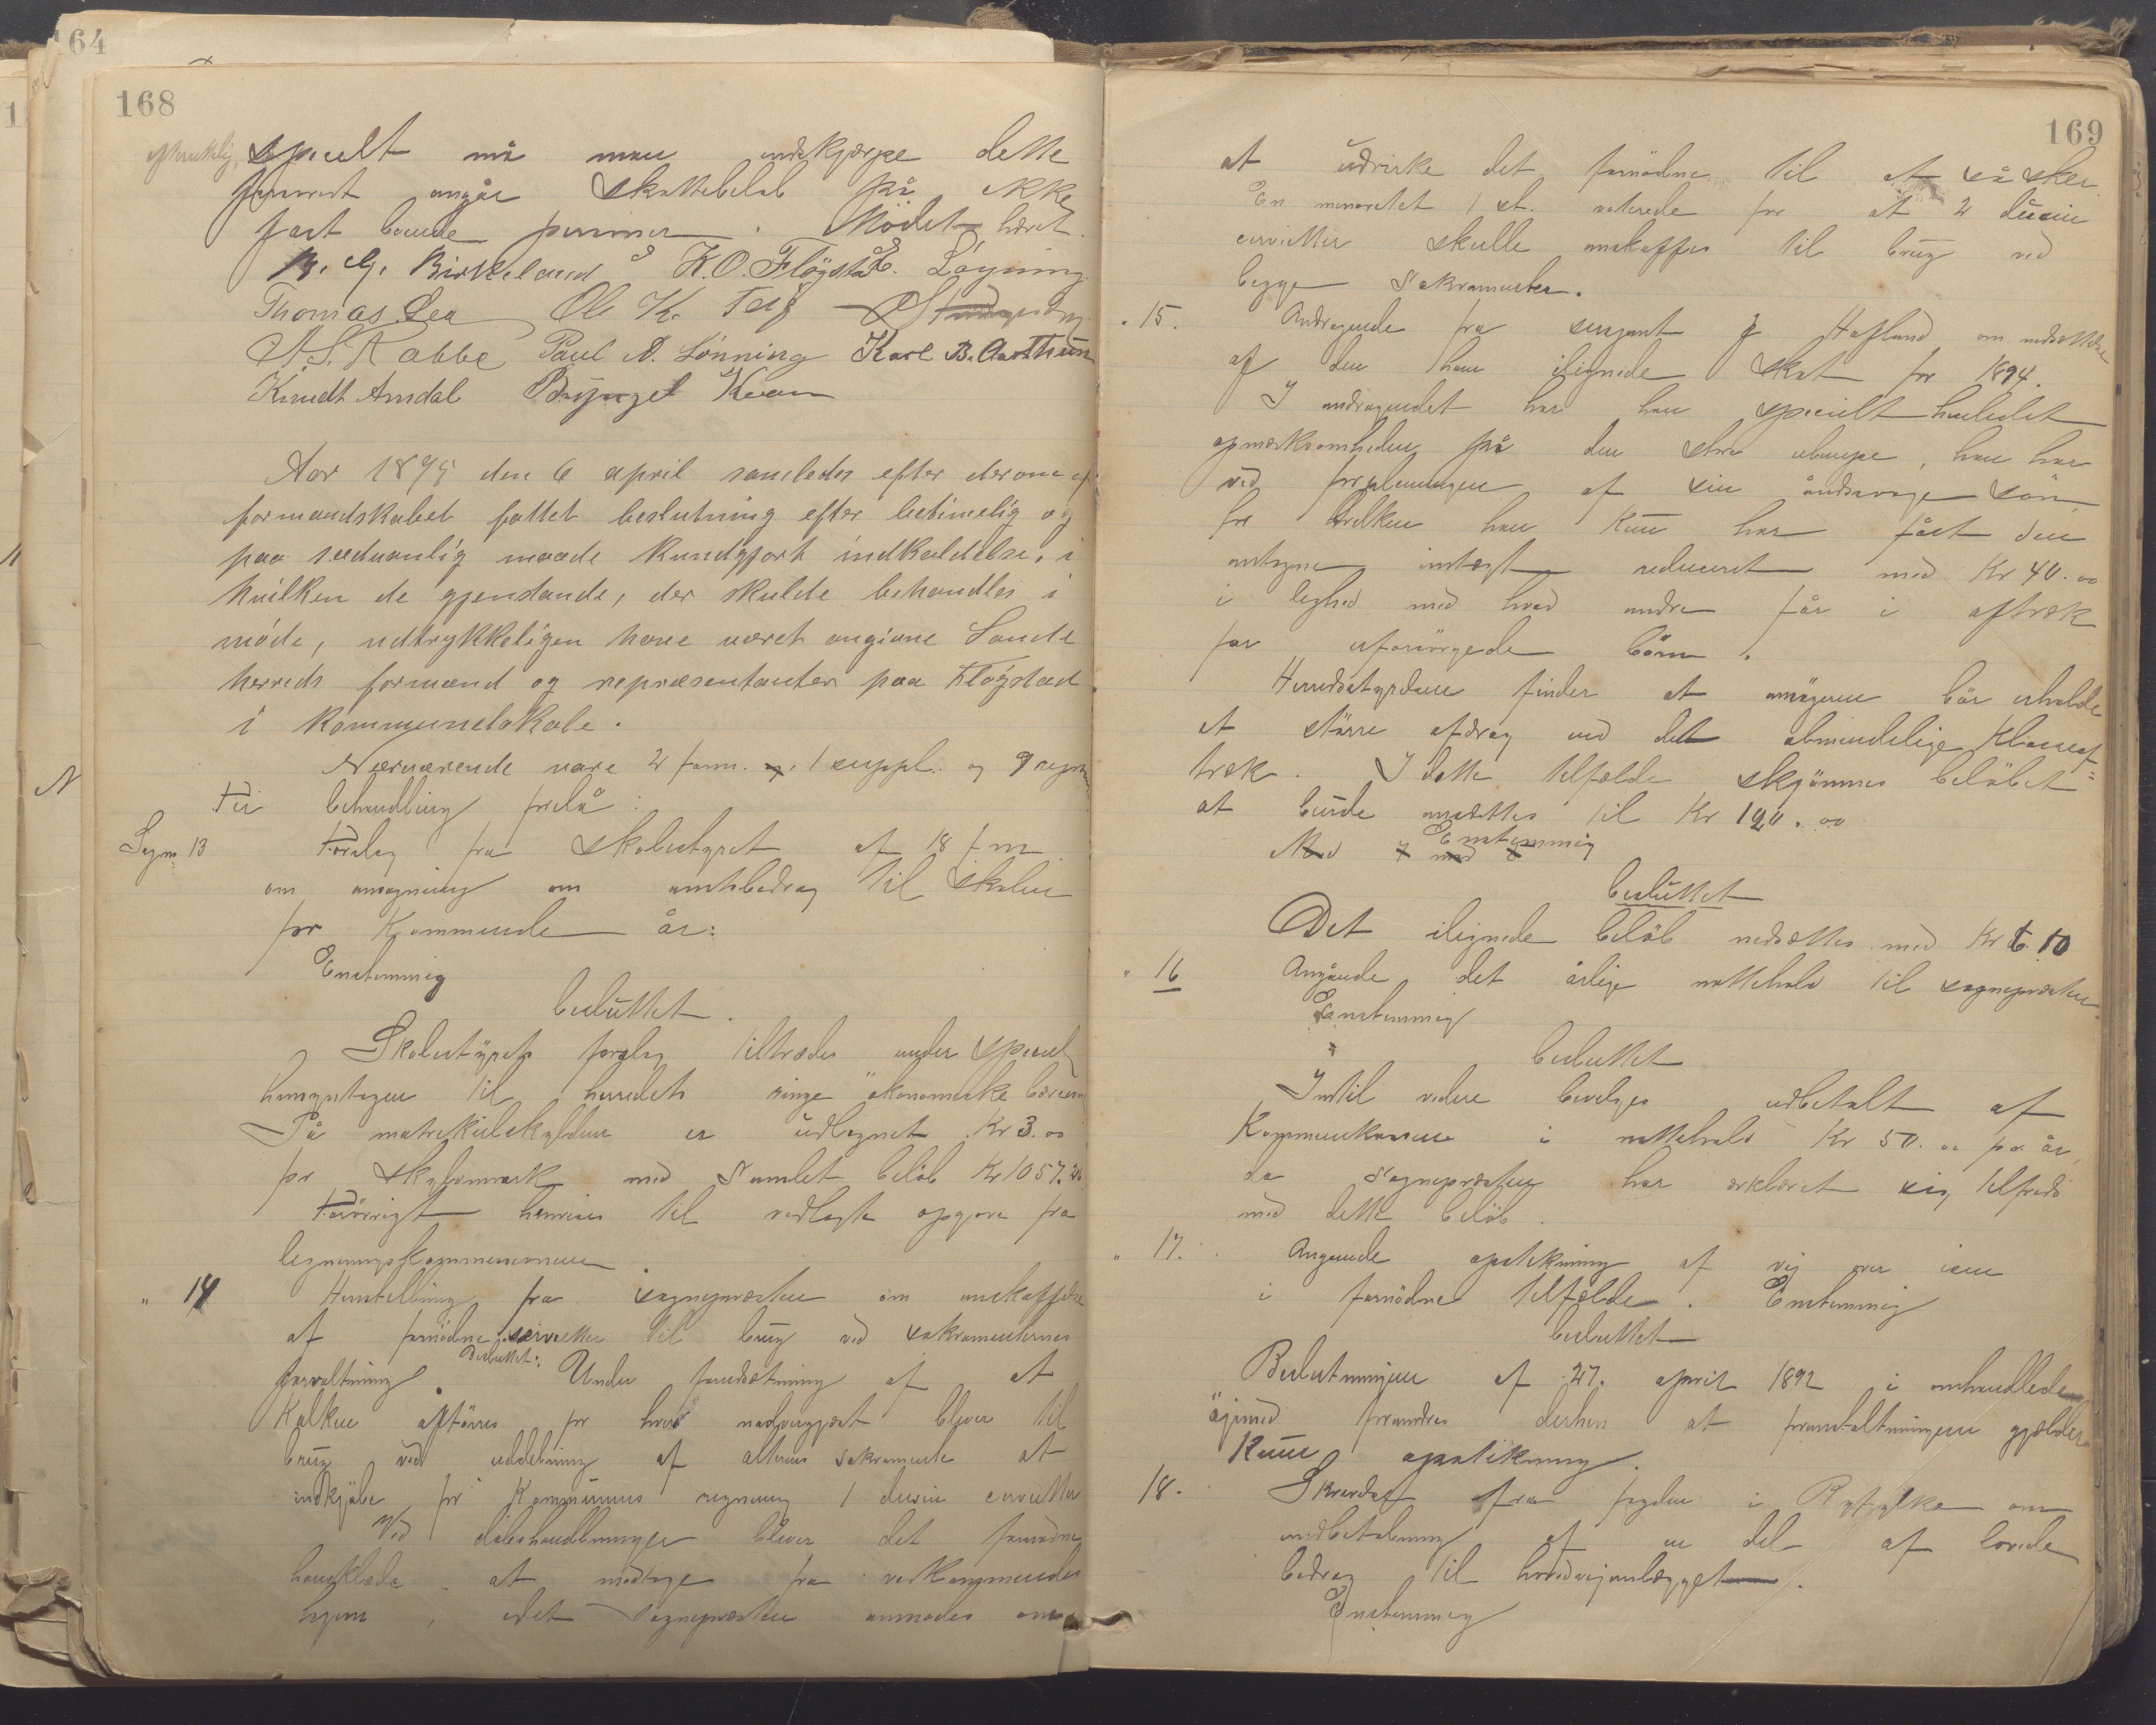 164
168
specielt må man indskjærpe dette
forsåvidt angår skattebeløb på ikke
fast boende personer. Mødet hævet.
B. G. Birkeland K. O. Fløgstad E. Løgning
Thomas Lea Ole K. Teig
A. S. Rabbe Paul A. Lönning Karl B. Aarthun
Knudt Amdal Bryngel Kvam
Aar 1895 den 6 april samledes efter derom af
formandskabet fattet beslutning efter betimelig og
paa sædvanlig maade kundgjort indkaldelse, i
hvilken de gjenstande, der skulde behandles i
møde, udtrykkeligen have været angivne Sande
herreds formænd og repræsentanter paa Fløgstad
i kommunelokale.
Nærværende vare 2 form. 1 suppl. og 9 repr.
Til behandling forelå:
Sagn 13 Forslag fra skolestyret af 18 f. m.
om ansøgning om amtsbidrag til skolen
for kommende år:
Enstemmig
besluttet.
Skolestyrets forslag tiltrædes under speciel
hensyntagen til herredets ringe økonomiske bæreevne
På matrikulskylden er udlignet Kr 3.00
pr skyldmark med samlet beløb Kr 1057.20
Forövrigt henvises til vedlagte opgave fra
ligningskommissionen.
" 14 Henstilling fra sognepræsten om anskaffelse
af fornödne servietter til brug ved sakramenternes
forvaltning. Besluttet: Under forudsætning af at
kalken aftörres for hver nadvergjæst bliver til
brug ved uddelning af alterens sakramente at
indkjøbe for kommunens regning 1 dusin servietter
Ved dåbshandlinger bliver det fornødne
håndklæde at medtage fra vedkommendes
hjem, idet sognepræsten anmodes om
169
at udvirke det fornødne til at så sker.
En minoritet 1 st. voterede for at 2 dusin
servietter skulle anskaffes til brug ved
begge sakramenter.
" 15. Andragende fra sergeant J Hafland om nedsættelse
af den ham ilignede skat for 1894.
I andragendet har han specielt henledet
opmærksomheden på den store ulempe, han har
ved forpleiningen af sin åndssvage søn,
for hvilken han kun har fået den
antagne indtægt reduceret med Kr 40.00
i lighed med hvad andre får i aftræk
for uforsörgede börn.
Herredsstyrelsen finder at ansøgeren bör erholde
et större afdrag end det almindelige klasseaf=
træk. I dette tilfælde skjönnes beløbet
at burde ansættes til Kr 120.00
Enstemmig
besluttet
Det ilignede beløb nedsættes med Kr 6.10
" 16 Angående det årlige nattehold til sognepræsten
Enstemmig
besluttet
Indtil videre bevilges udbetalt af
Kommunekassen i nattehold Kr 50.00 pr år,
da sognepræsten har erklæret sig tilfreds
med dette beløb.
" 17. Angående opstikning af vej over isen
i fornødne tilfælde. Enstemmig
besluttet
Beslutningen af 27. april 1892 i omhandlede
öjemed forandres derhen at foranstaltningerne gjælder
kun opstikning.
18. Skrivelse fra fogden i Ryfylke om
indbetaling af en del af lovede
bidrag til hovedvejanlægget.
Enstemmig